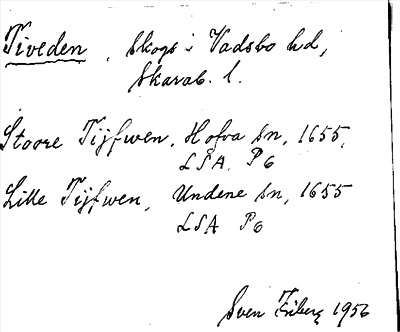 Tiveden, Skogs i Vadsbo hd,
Skarab. l.
Stoore Tijfwen, Hofva sn, 1655,
LSA. P6
Lille Tijfwen, Undene sn, 1655
LSA P6
Sven Friberg 1956